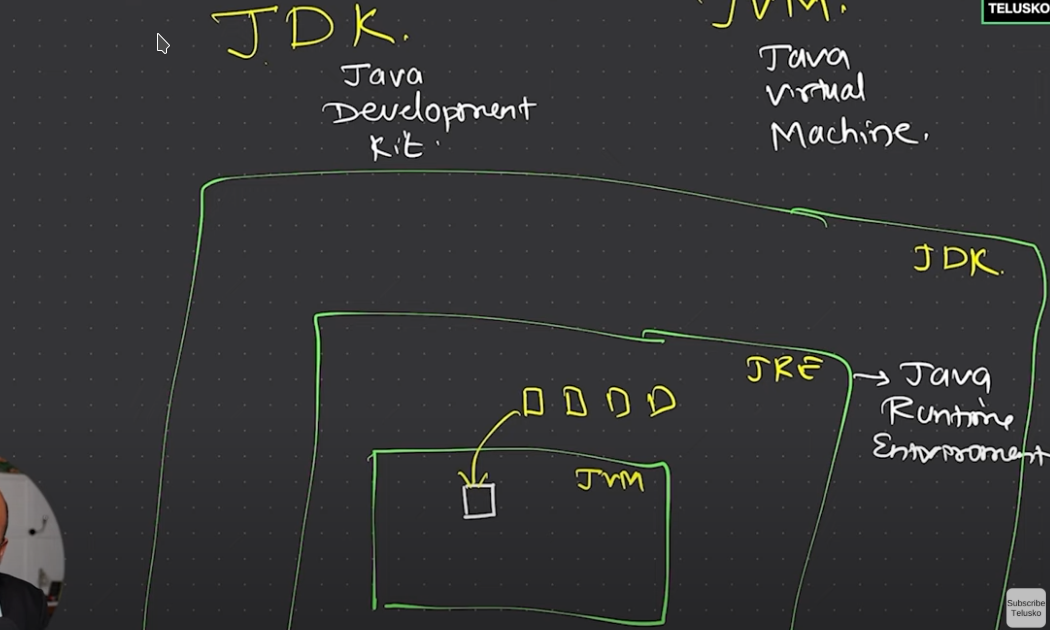 JDK.
Java
Development
Kit.
JVM.
Java
Virtual
Machine.
TELUSKO
JDK.
JRE
→ Java
Runtime
Environment
JVM
Subscribe
Telusko